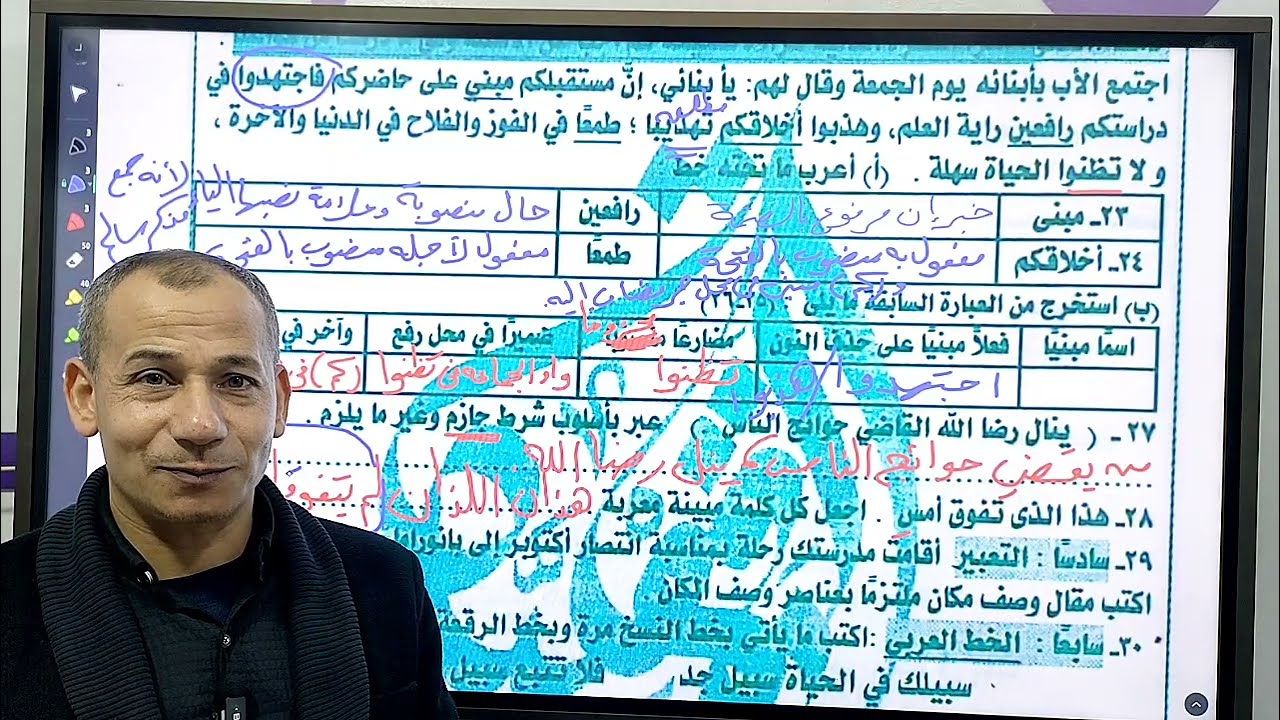 اجتمع الأب بأبنائه يوم الجمعة وقال لهم: يأ بنائي، إنَّ مستقبلكم مبني على حاضركم فاجتهدوا في
دراستكم رافعين راية العلم، وهذبوا أخلاقكم تهذيبا ؛ طمعًا في الفوز والفلاح في الدنيا والآخرة ،
و لا تظنوا الحياة سهلة . (أ) أعرب ما تحته خط
لأنه جمع
مذكر سالم
٢٣ـ مبنى
خبر إن مرفوع بالضمة
رافعين
حال منصوبة وعلامة نصبها الياء
٢٤ـ أخلاقكم
مفعول به منصوب بالفتحة
طمعًا
مفعول لأجله منصوب بالفتحة
(ب) استخرج من العبارة السابقة ما يلي
اسمًا مبنيًا
فعلاً مبنيًا على حذف النون
مضارعًا
مجزوما
ضميرًا في محل رفع
وآخر في
اجتهدوا
تظنوا
واو الجماعة فى تظنوا
(كم) فى
٢٧ـ ( ينال رضا الله القاضي حوائج الناس ) عبر بأسلوب شرط جازم وغير ما يلزم .
من يقض حوائج الناس ينل رضا الله
٢٨ـ هذا الذى تفوق أمس . اجعل كل كلمة مبينة معربة
هذان اللذان لم يتفوقا
٢٩ـ سادسًا : التعبير أقامت مدرستك رحلة بمناسبة انتصار أكتوبر الى بانوراما
اكتب مقال وصف مكان ملتزمًا بعناصر وصف الكان .
٣٠ـ سابعًا : الخط العربي :اكتب ما يأتي بخط النسخ مرة وبخط الرقعة
سبيلك في الحياة سبيل جد فلا تتبع سبيل